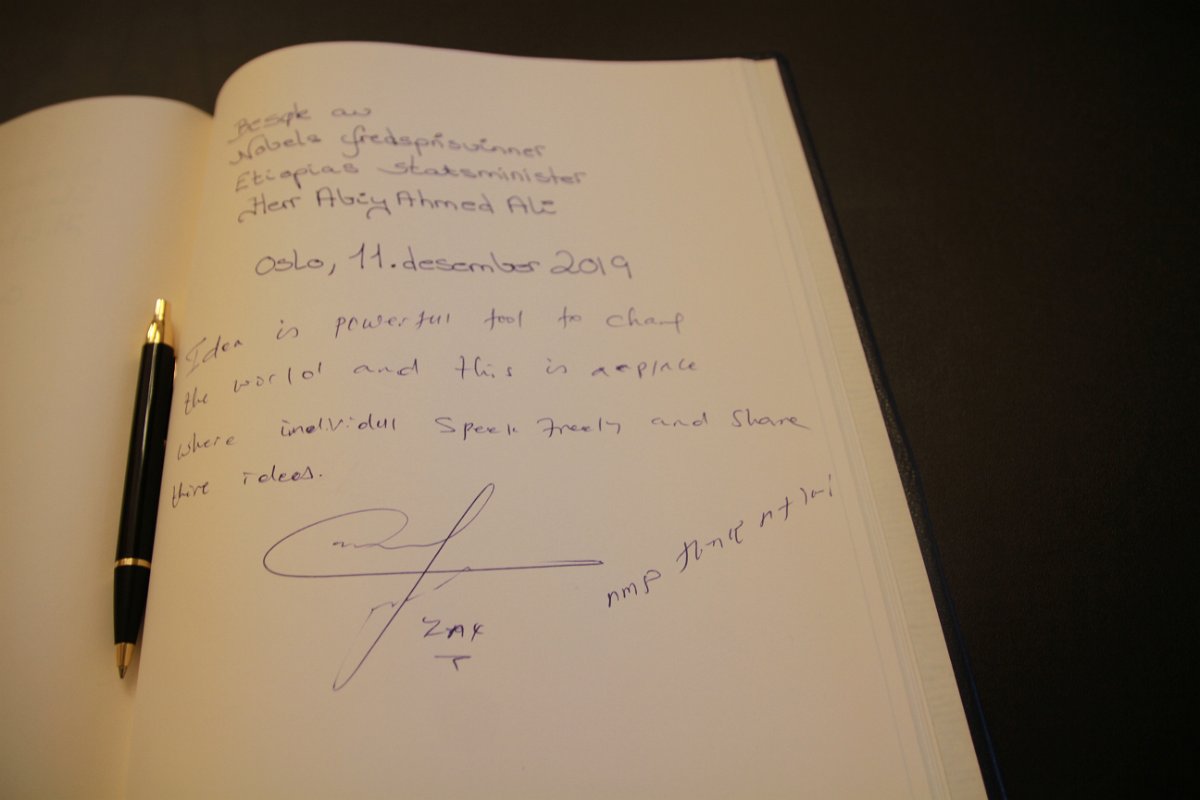 Besøk av
Nobels fredsprisvinner
Etiopias statsminister
Herr Abiy Ahmed Ali
Oslo, 11. desember 2019
Idea is powerful tool to chang
the world and this is a place
where individul speek freely and share
thire ideas.